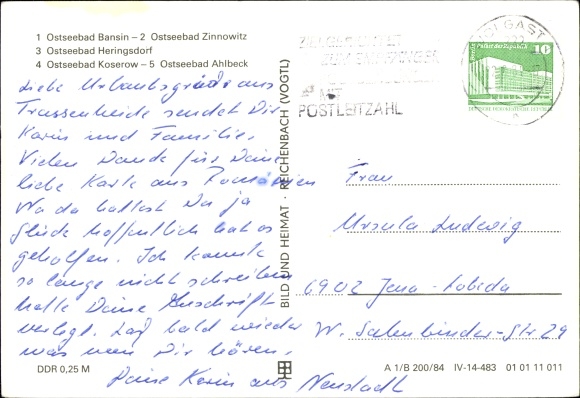 1 Ostseebad Bansin – 2 Ostseebad Zinnowitz
3 Ostseebad Heringsdorf
4 Ostseebad Koserow – 5 Ostseebad Ahlbeck
Liebe Urlaubsgrüße aus
Trassenheide sendet Dir
Karin und Familie.
Vielen Dank für Deine
liebe Karte aus Rumänien
Na da hattest Du ja
Glück hoffentlich hat es
geholfen. Ich konnte
so lange nicht schreiben
hatte Deine Anschrift
verlegt. Laß bald wieder
was von Dir hören.
Deine Karin aus Neustadt
DDR 0,25 M
BILD UND HEIMAT · REICHENBACH (VOGTL)
WOLGAST
POSTLEITZAHL
Palast der Republik
10
DEUTSCHE DEMOKRATISCHE REPUBLIK
Frau
Ursula Ludwig
6902 Jena-Lobeda
W. Salenbinder-Str 29
A 1/B 200/84 IV-14-483 01 01 11 011